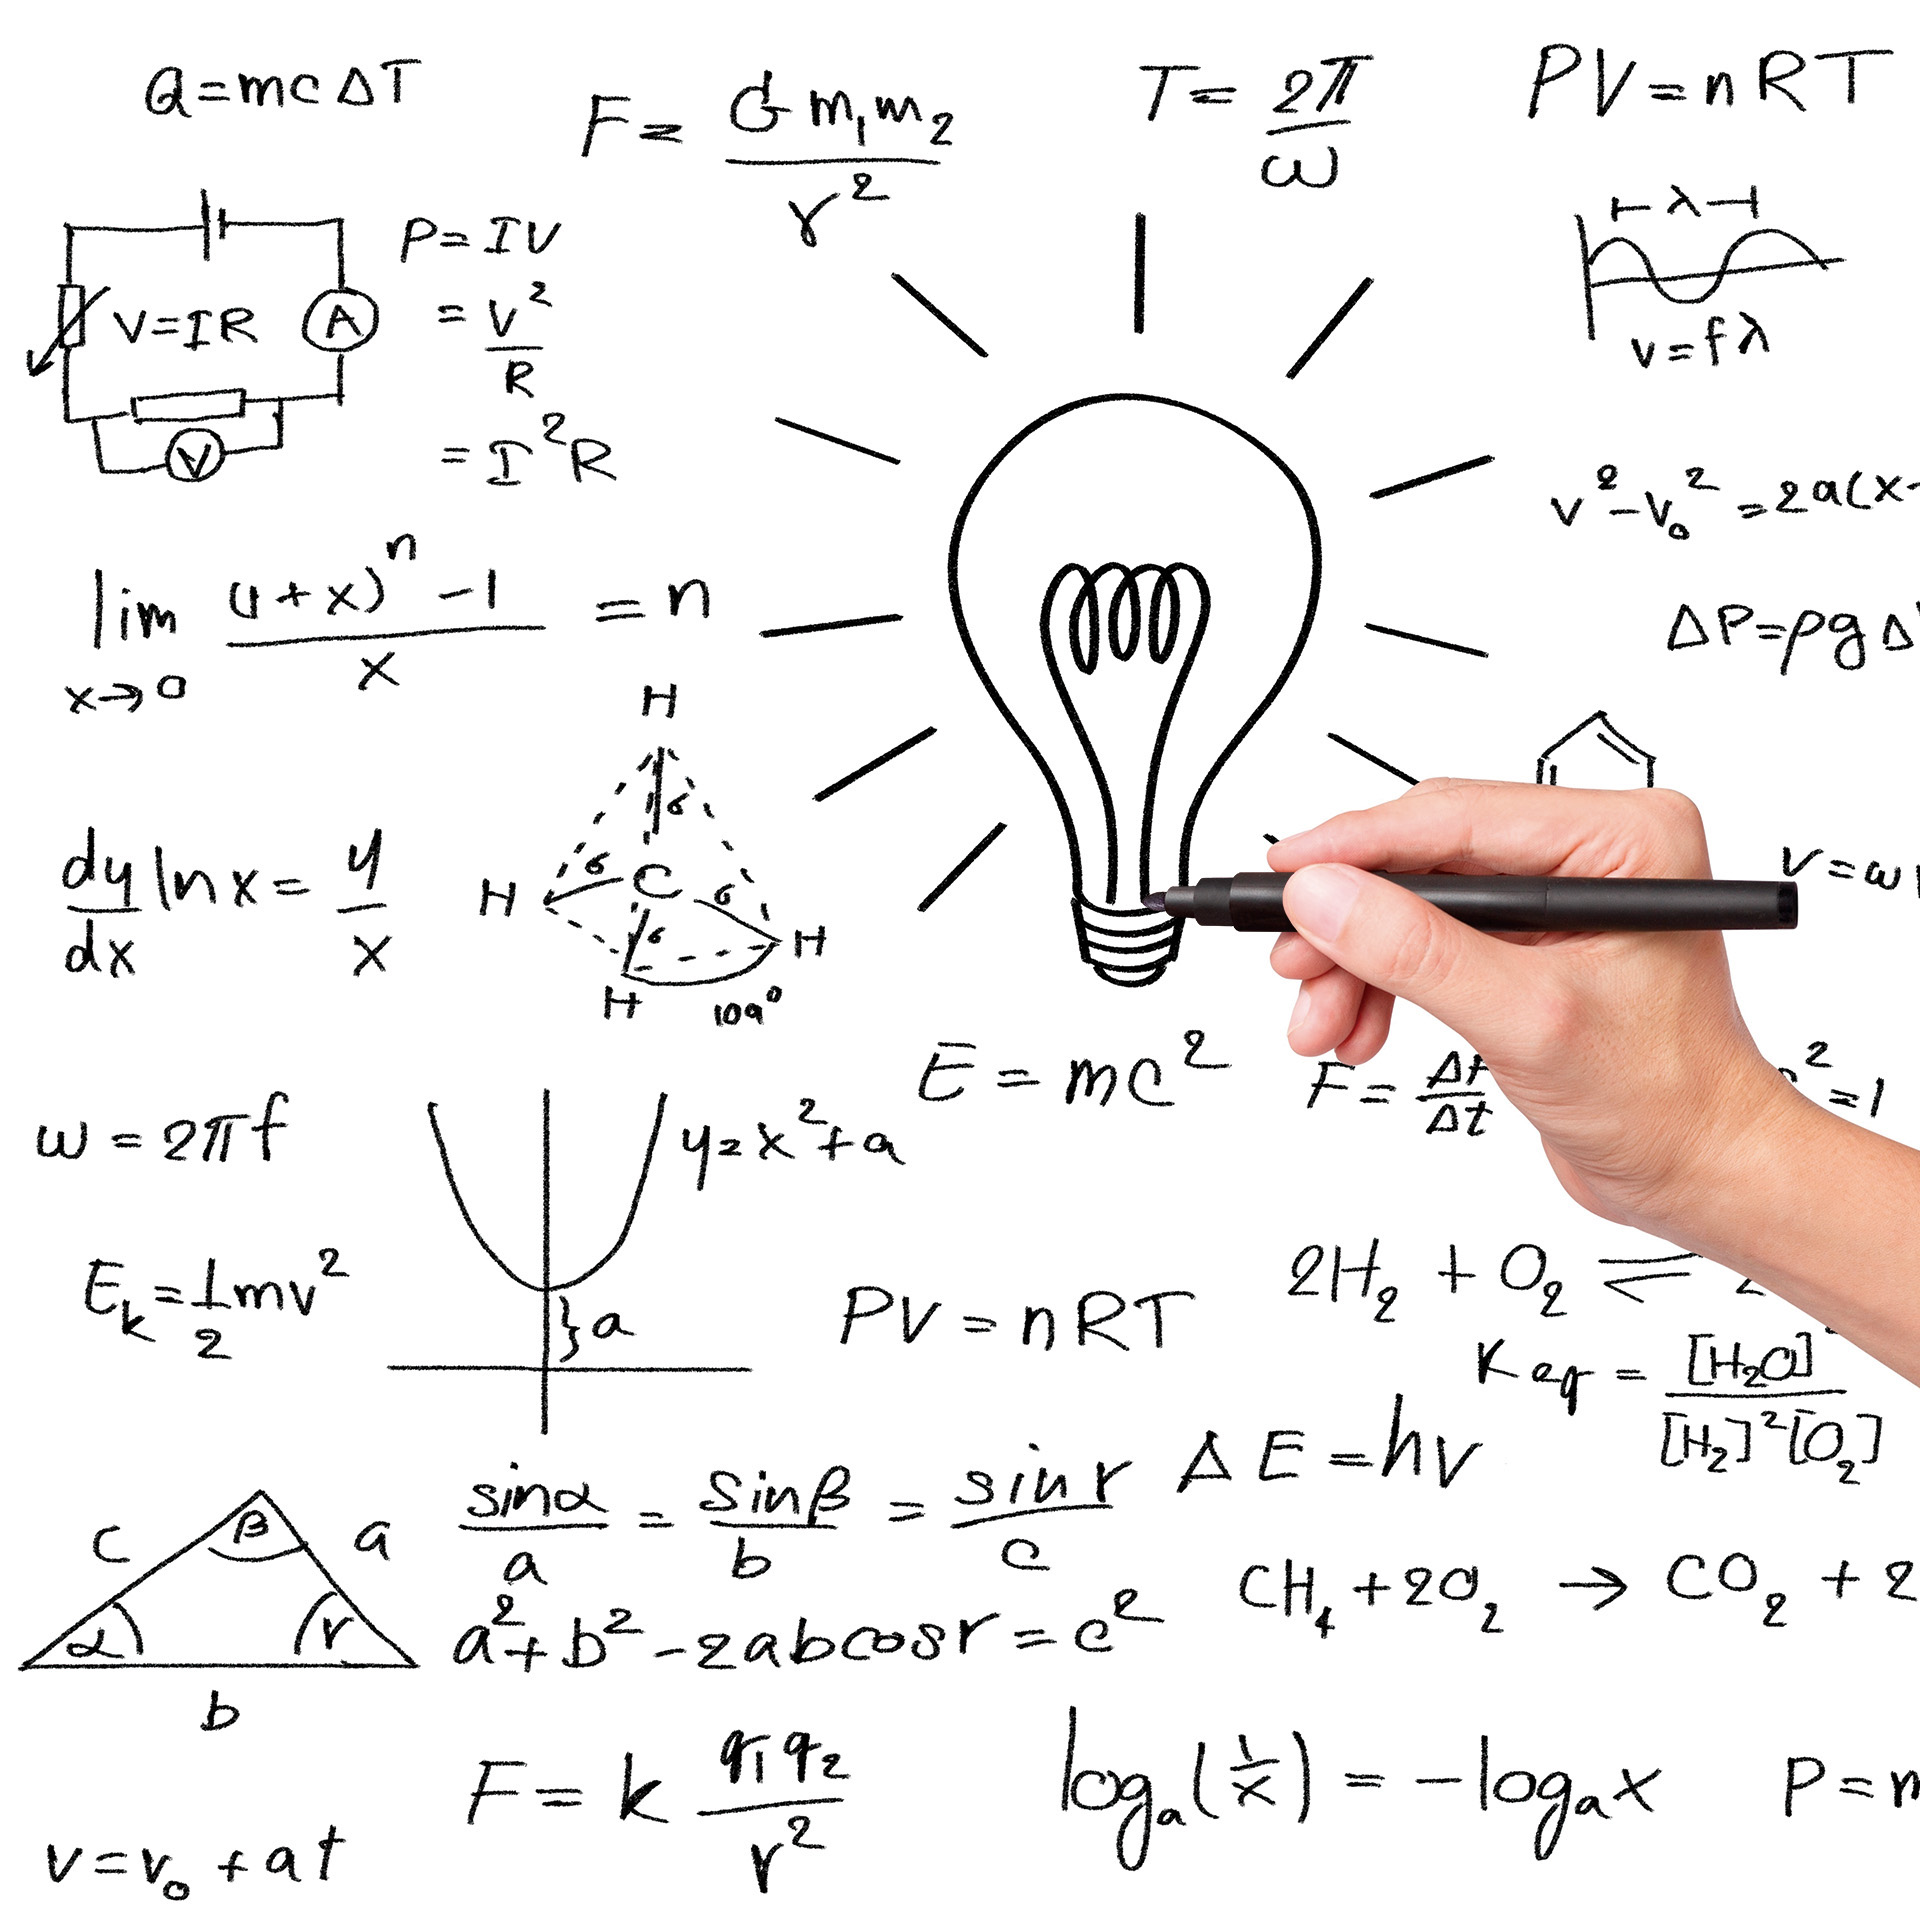 Q=mcΔT
F= G m₁m₂ / r²
T= 2π / ω
PV=nRT
P=IV
= V² / R
= I²R
V=IR
A
V
λ
v=fλ
v²-v₀²=2a(x-
lim x→0 (1+x)ⁿ-1 / x = n
ΔP=ρgΔ
H
σ
σ
C
σ
H
H
σ
H
109°
dy/dx ln x = y/x
v=ω
E=mc²
F= Δ / Δt
²=1
ω=2πf
y=x²+a
a
Eₖ=1/2mv²
PV=nRT
2H₂+O₂⇌2
Keq = [H₂O]² / [H₂]²[O₂]
ΔE=hv
c
β
a
α
r
b
sinα / a = sinβ / b = sinr / c
a²+b²-2abcosr=c²
CH₄+2O₂→CO₂+2
F=k q₁q₂ / r²
logₐ(1/x)=-logₐx
P=m
v=v₀+at